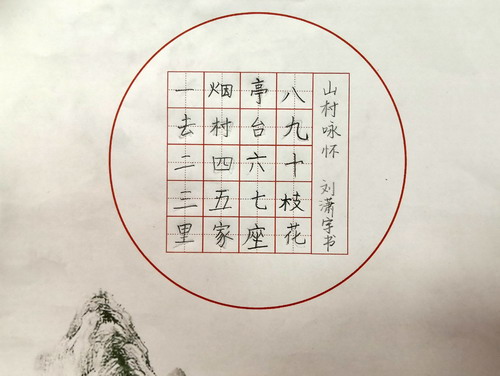 一去二三里
烟村四五家
亭台六七座
八九十枝花
山村咏怀 刘潇宇书